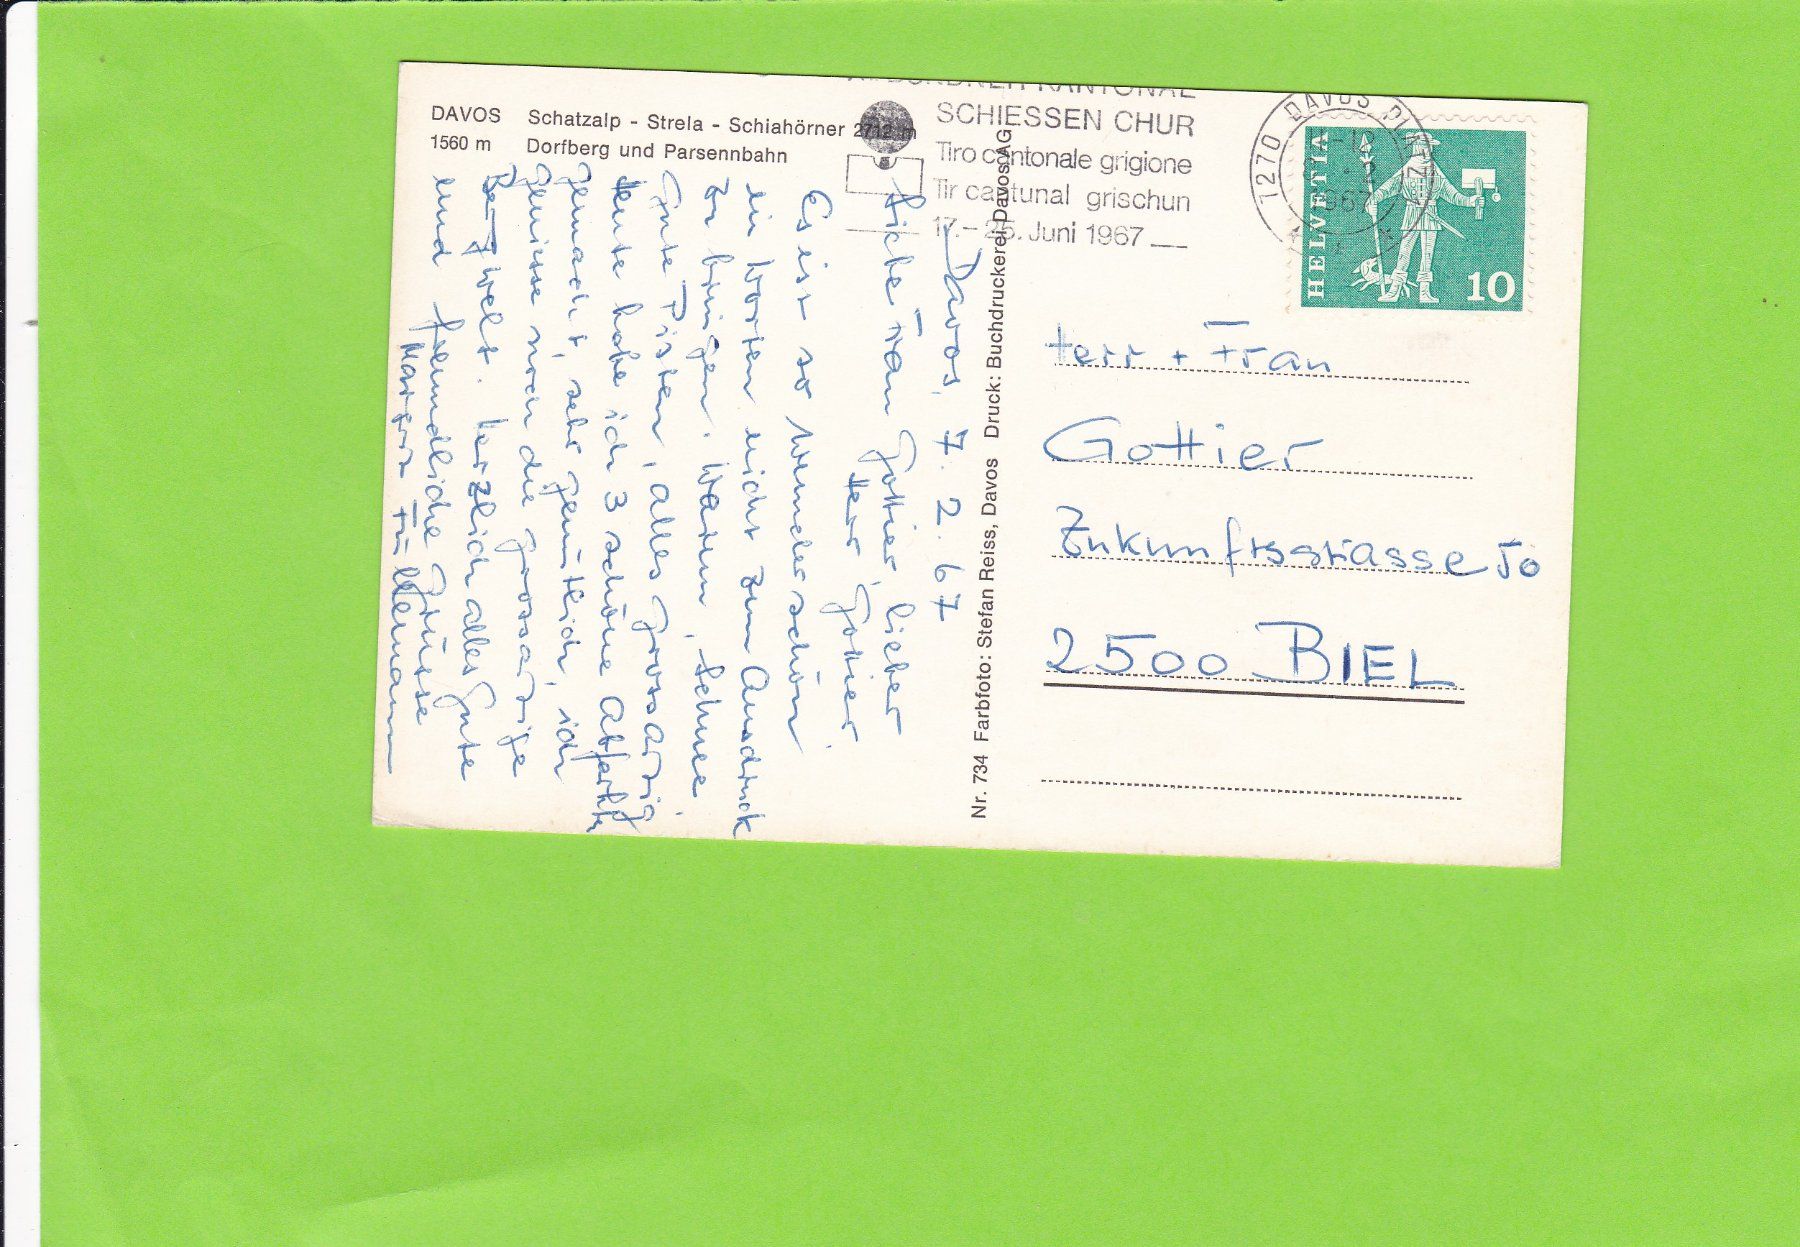 DAVOS Schatzalp - Strela - Schiahörner 2712 m
1560 m Dorfberg und Parsennbahn
KANTONAL
SCHIESSEN CHUR
Tiro cantonale grigione
Tir cantunal grischun
17.-25. Juni 1967
1270 DAVOS PLATZ
1967
HELVETIA
10
Davos, 7. 2. 67
Liebe Frau Gottier, lieber
Herr Gottier
Es ist so wunderschön
in Worten nicht zum Ausdruck
zu bringen. Warm, Schnee
gute Pisten, alles grossartig
Heute habe ich 3 schöne Abfahrten
gemacht, sehr gemütlich, ich
geniesse noch die grossartige
Bergwelt. Herzlich alles Gute
und freundliche Grüsse
Margrit
Nr. 734 Farbfoto: Stefan Reiss, Davos Druck: Buchdruckerei Davos AG
Herr + Frau
Gottier
Zukunftsstrasse 50
2500 BIEL